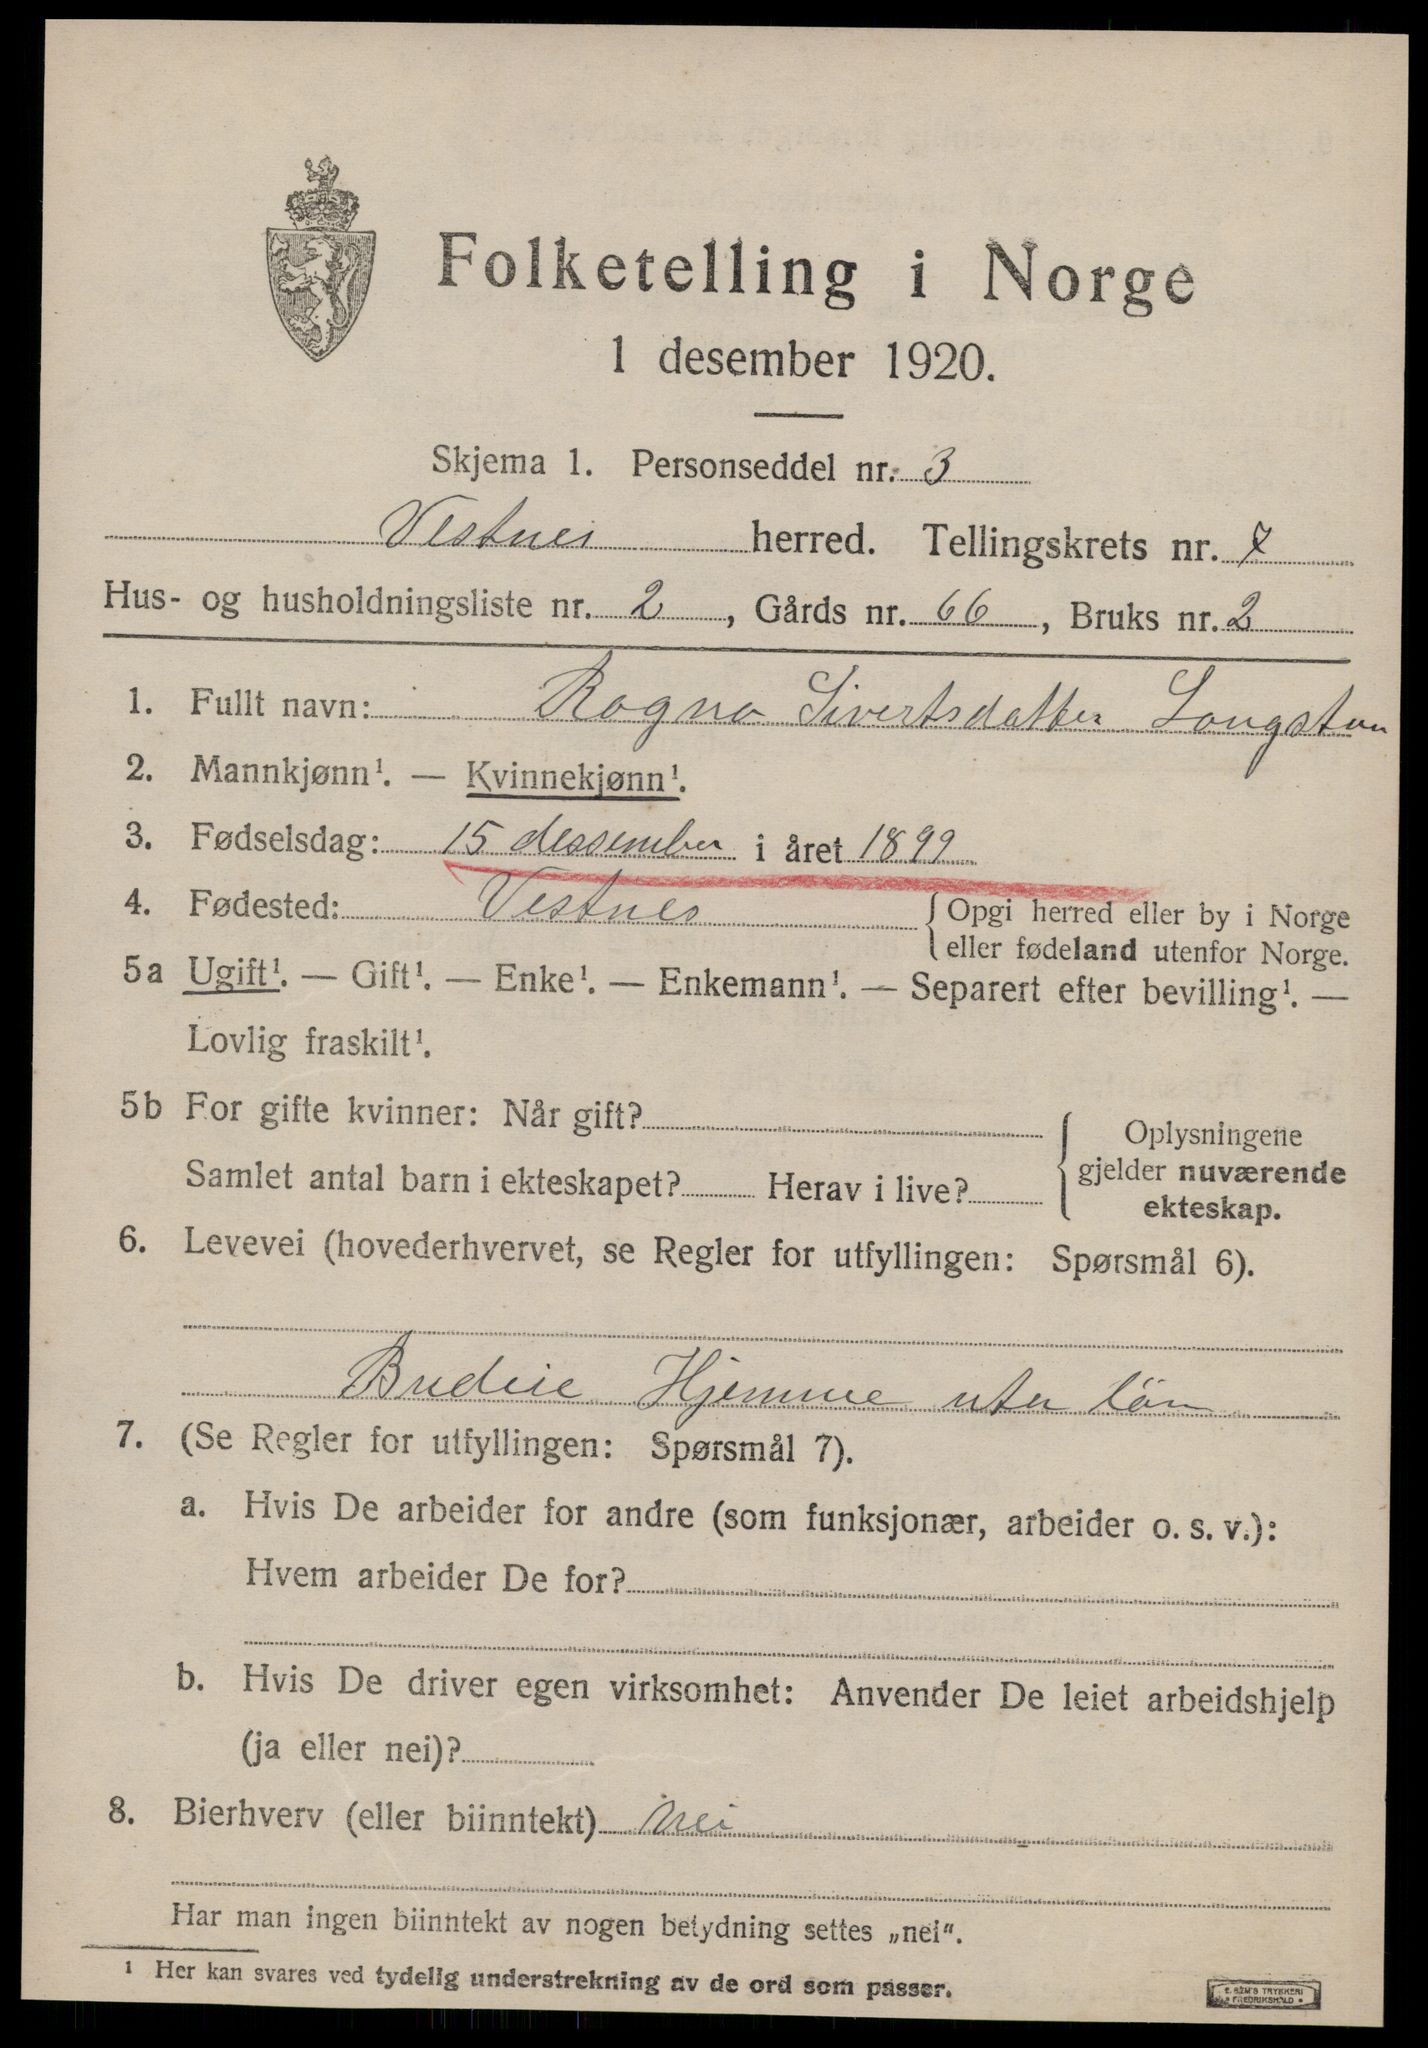 Folketelling i Norge
1 desember 1920.
Skjema 1. Personseddel nr. 3
Vestnes herred. Tellingskrets nr. 7
Hus- og husholdningsliste nr. 2, Gårds nr. 66, Bruks nr. 2
1. Fullt navn: Ragna Sivertsdatter
2. Mannkjønn¹. — Kvinnekjønn¹.
3. Fødselsdag: 15 dessember i året 1899
4. Fødested: Vestnes {Opgi herred eller by i Norge
eller fødeland utenfor Norge.
5a Ugift¹. — Gift¹. — Enke¹. — Enkemann¹. — Separert efter bevilling¹. —
Lovlig fraskilt¹.
5b For gifte kvinner: Når gift? {Oplysningene
Samlet antal barn i ekteskapet? Herav i live? gjelder nuværende
ekteskap.
6. Levevei (hovederhvervet, se Regler for utfyllingen: Spørsmål 6).
Budeie Hjemme uten løn
7. (Se Regler for utfyllingen: Spørsmål 7).
a. Hvis De arbeider for andre (som funksjonær, arbeider o. s. v.):
Hvem arbeider De for?
b. Hvis De driver egen virksomhet: Anvender De leiet arbeidshjelp
(ja eller nei)?
8. Bierhverv (eller biinntekt) Nei
Har man ingen biinntekt av nogen betydning settes „nei“.
¹ Her kan svares ved tydelig understrekning av de ord som passer.
TRYKKERI
FREDRIKSHALD